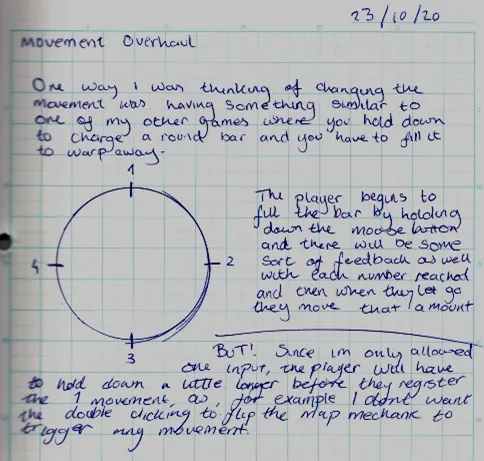 23/10/20
Movement Overhaul
One way i was thinking of changing the
movement was having something similar to
one of my other games where you hold down
to charge a round bar and you have to fill it
to warp away.
1
2
3
4
The player begins to
fill the bar by holding
down the mouse button
and there will be some
sort of feedback as well
with each number reached
and then when they let go
they move that amount
BUT! Since im only allowed
one input, the player will have
to hold down a little longer before they register
the 1 movement, as, for example I dont want
the double clicking to flip the map mechanic to
trigger any movement.